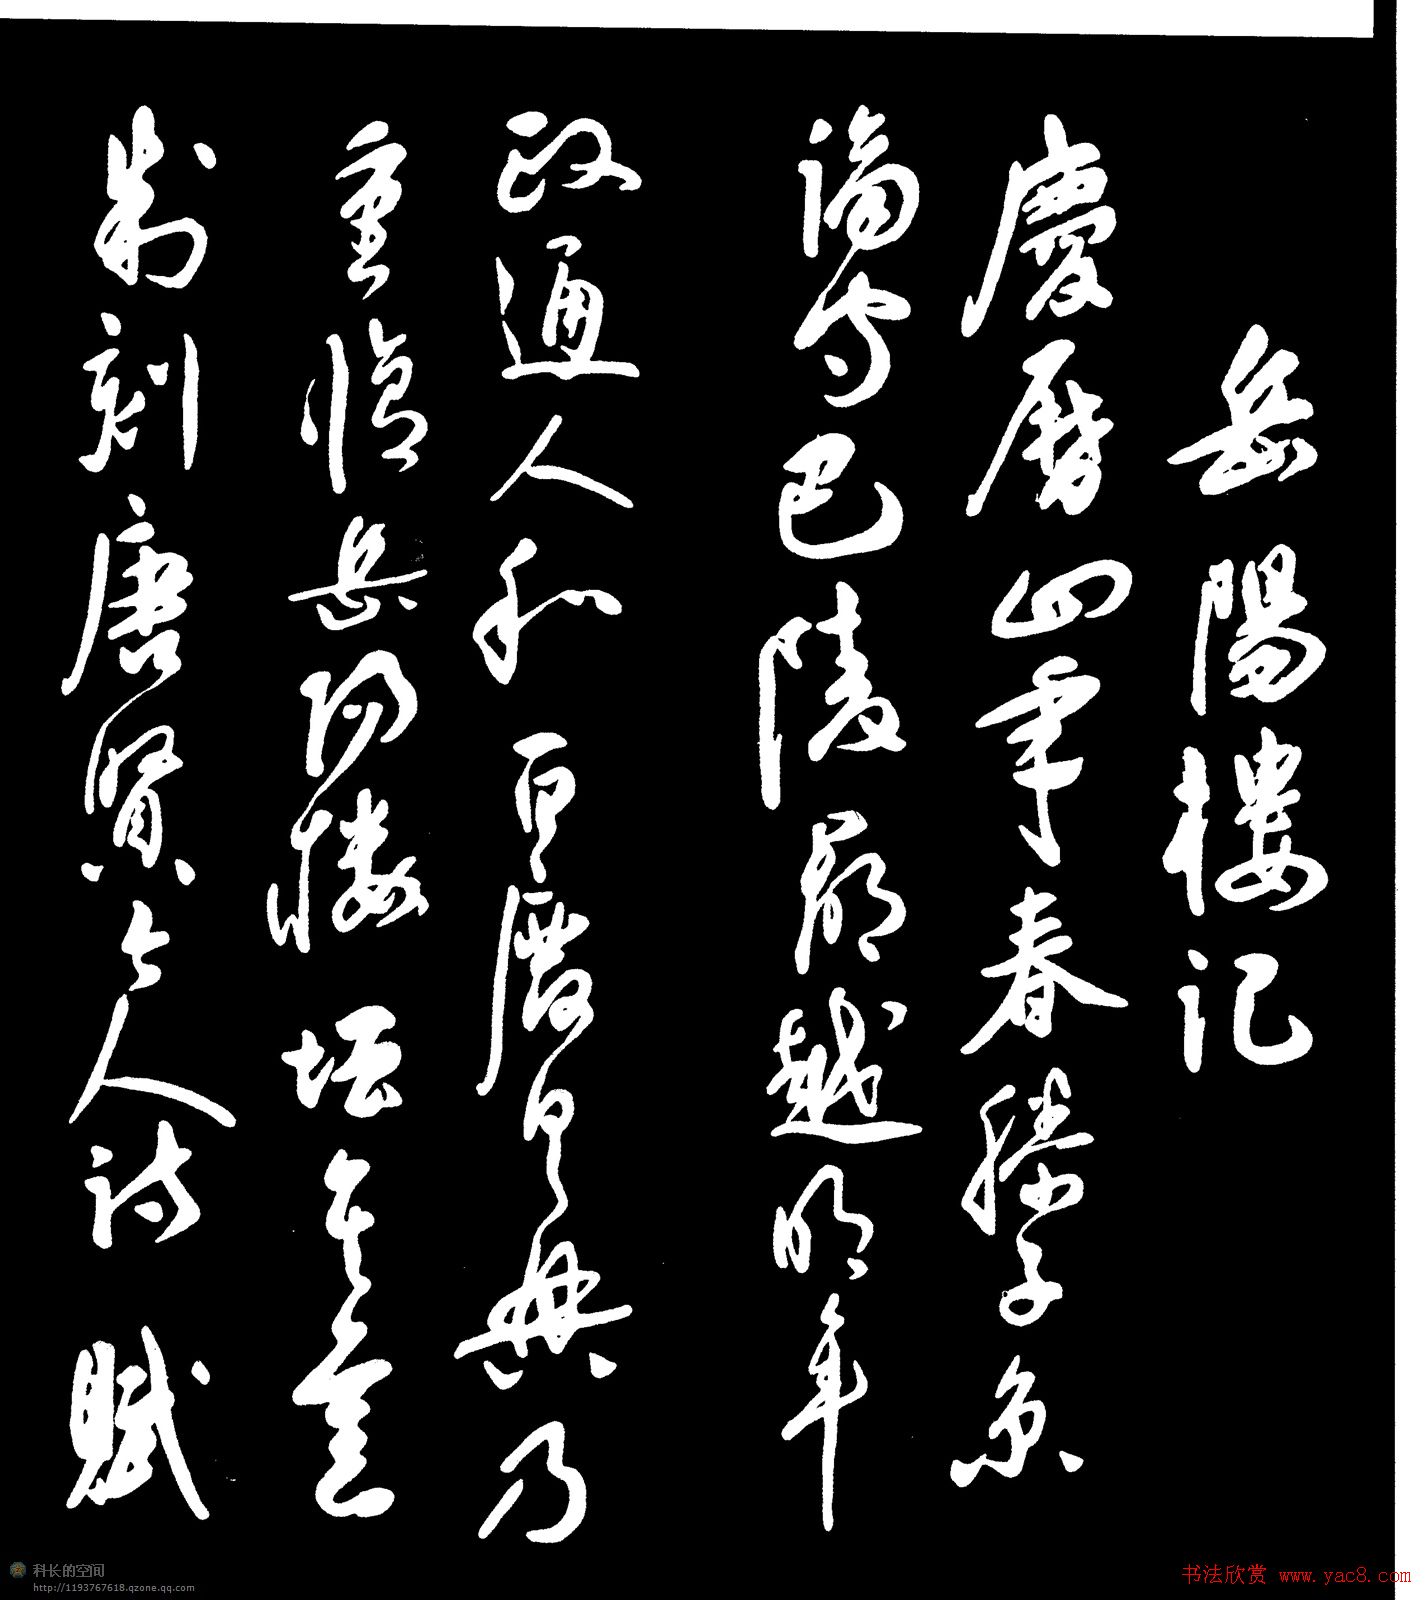 岳陽樓記
慶曆四年春滕子京
謫守巴陵郡越明年
政通人和百廢具興乃
重修岳陽樓增其舊
制刻唐賢今人詩賦
科长的空间
http://1193767618.qzone.qq.com
书法欣赏 www.yac8.com